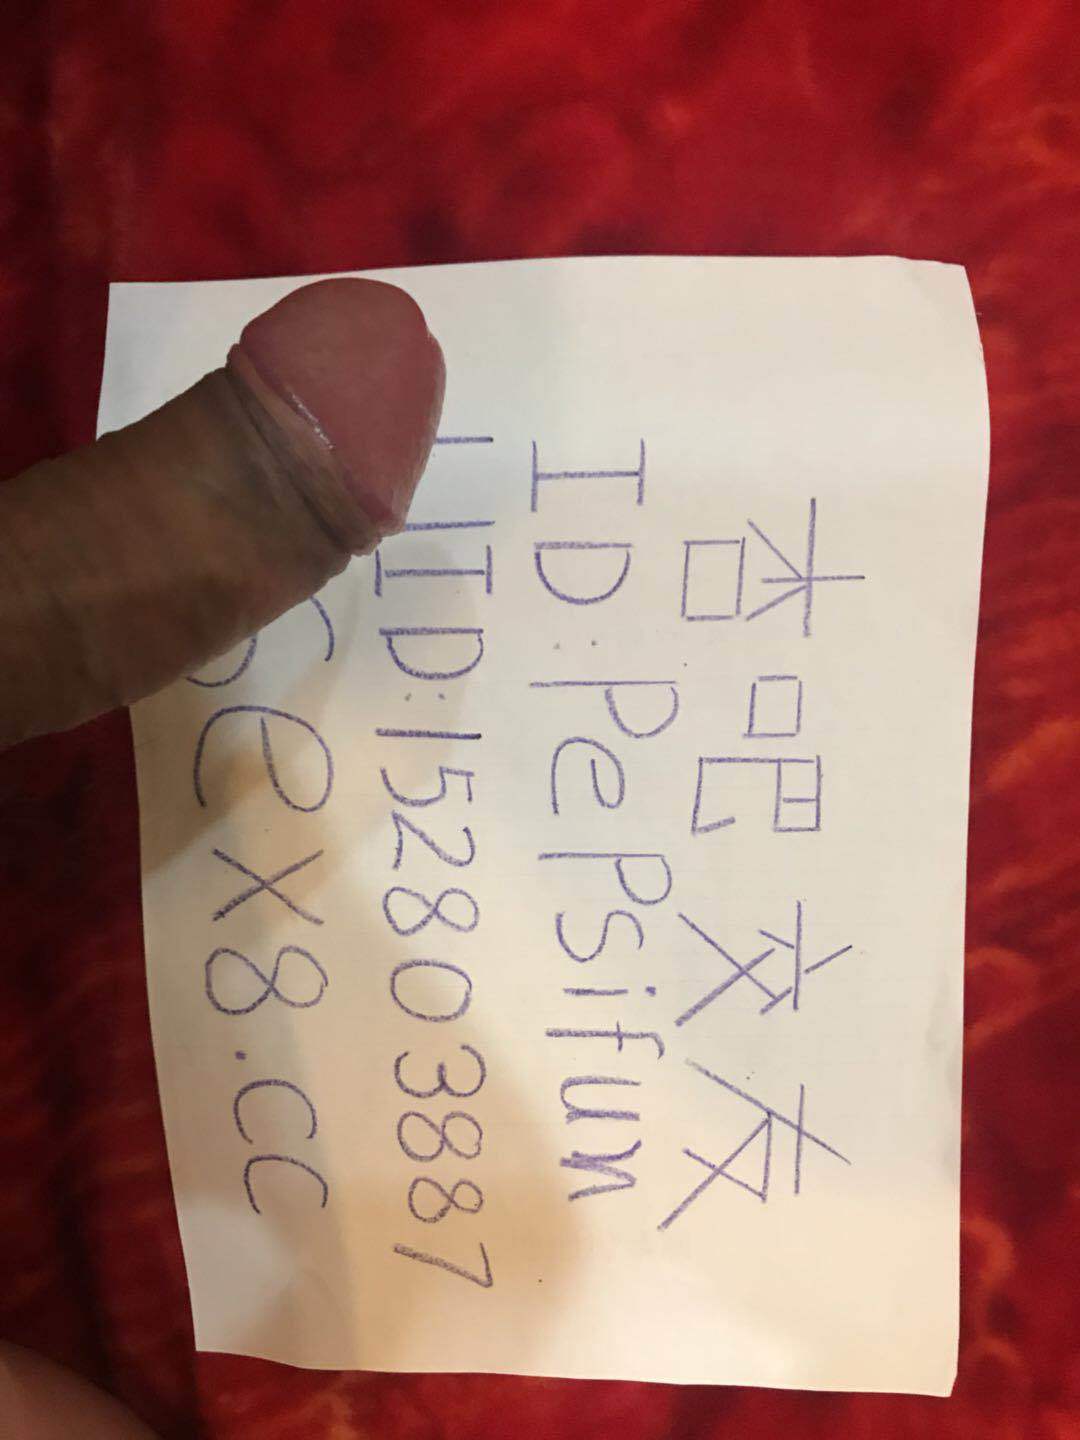 杏吧交友
ID:pepsifun
UID:15280388​7
sex8.cc